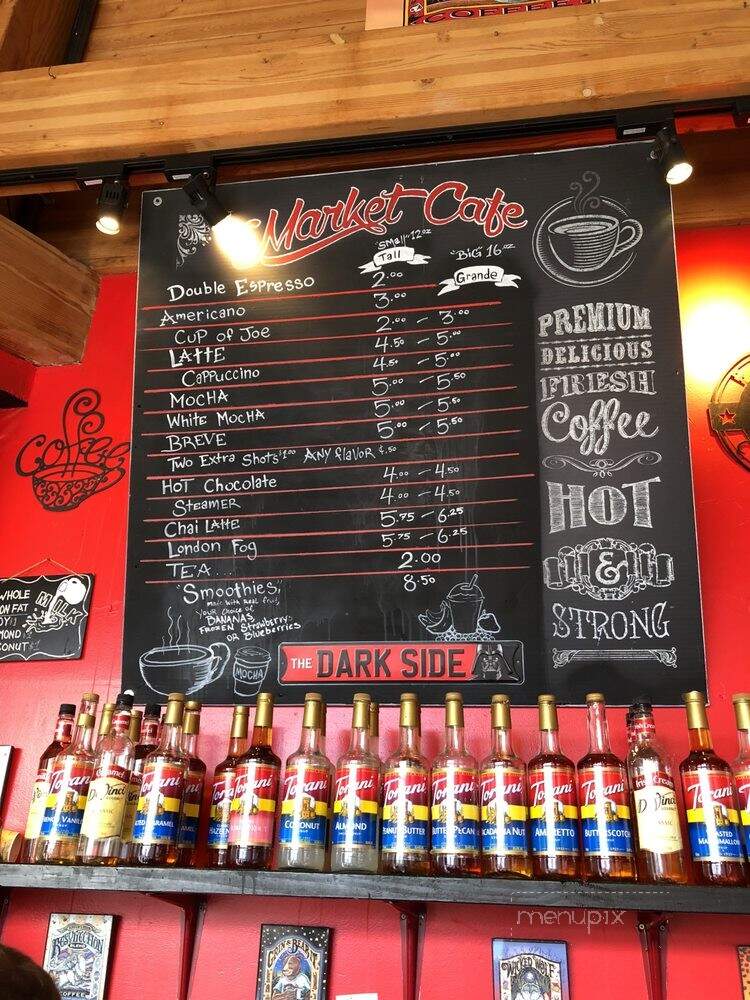 COFFEE
Market Cafe
"SMall" 12oz
Tall
"BIG" 16oz
Grande
Double Espresso 2.00
Americano 3.00
Cup of Joe 2.00 – 3.00
LATTE 4.50 – 5.00
Cappuccino 4.50 – 5.00
MOCHA 5.00 – 5.50
White Mocha 5.00 – 5.50
BREVE 5.00 – 5.50
Two Extra Shots $1.00 ANY flavor $.50
HOT Chocolate 4.00 – 4.50
Steamer 4.00 – 4.50
Chai Latte 5.75 – 6.25
London Fog 5.75 – 6.25
TEA... 2.00
"Smoothies" 8.50
Made with Real fruit
YOUR choice of
BANANAS
FROZEN Strawberrys
OR Blueberries
MOCHA
THE DARK SIDE
PREMIUM
DELICIOUS
FRESH
Coffee
HOT
&
STRONG
Coffee
WHOLE
FAT
MILK
Torani
Caramel
DaVinci
Torani
Torani
Torani
Torani
COCONUT
Torani
ALMOND
Torani
PEANUT BUTTER
Torani
BUTTER PECAN
Torani
MACADAMIA NUT
Torani
AMARETTO
Torani
BUTTERSCOTCH
Irish Cream
DaVinci
Torani
TOASTED
MARSHMALLOW
menupix
RESURRECTION
BLEND
COFFEE
WICKED WOLF